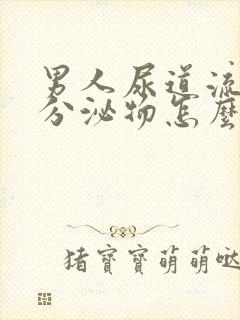 男人尿道流
分泌物怎麼
猪寶寶萌萌哒